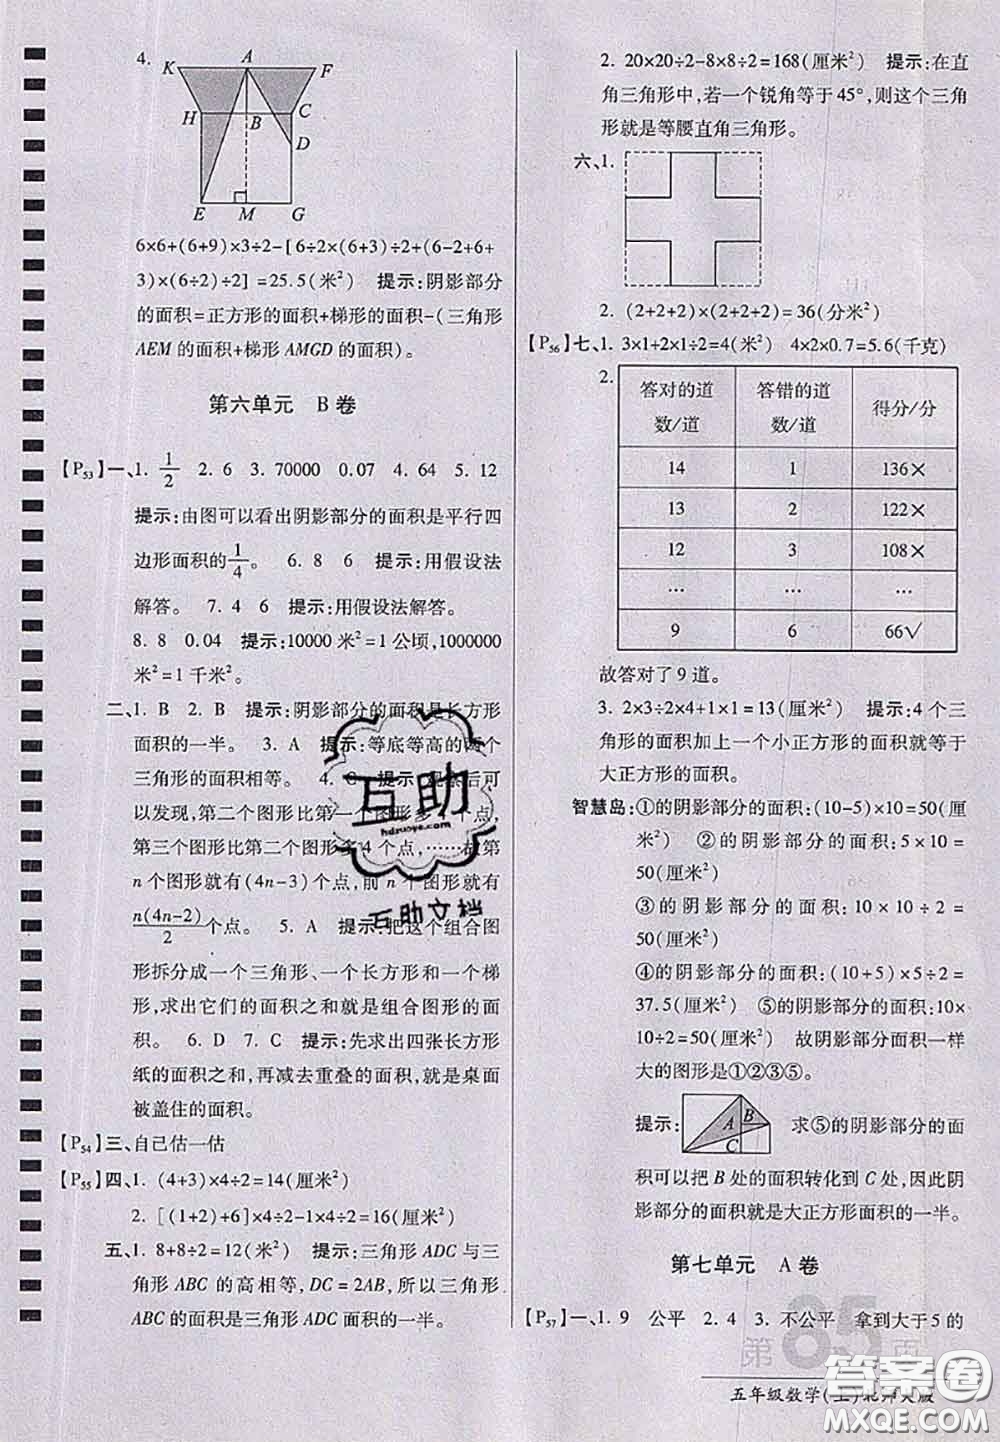 4.
K A F
H B C
D
E M G
6×6+(6+9)×3÷2-[6÷2×(6+3)÷2+(6-2+6+
3)×(6÷2)÷2]=25.5(米²) 提示:阴影部分
的面积=正方形的面积+梯形的面积-(三角形
AEM 的面积+梯形 AMGD 的面积)。
第六单元 B 卷
【P53】一、1. 1/2 2. 6 3. 70000 0.07 4. 64 5. 12
提示:由图可以看出阴影部分的面积是平行四
边形面积的1/4。 6. 8 6 提示:用假设法
解答。 7. 4 6 提示:用假设法解答。
8. 8 0.04 提示:10000 米²=1 公顷,1000000
米²=1 千米²。
二、1. B 2. B 提示:阴影部分的面积是长方形
面积的一半。 3. A 提示:等底等高的两个
三角形的面积相等。 4. C 提示:观察后可
以发现,第二个图形比第一个图形多4个点,
第三个图形比第二个图形多4个点,……故第
n 个图形就有(4n-3)个点,前 n 个图形就有
n(4n-2)/2 个点。 5. A 提示:把这个组合图
形拆分成一个三角形、一个长方形和一个梯
形,求出它们的面积之和就是组合图形的面
积。 6. D 7. C 提示:先求出四张长方形
纸的面积之和,再减去重叠的面积,就是桌面
被盖住的面积。
【P54】三、自己估一估
【P55】四、1. (4+3)×4÷2=14(厘米²)
2. [(1+2)+6]×4÷2-1×4÷2=16(厘米²)
五、1. 8+8÷2=12(米²) 提示:三角形 ADC 与三
角形 ABC 的高相等,DC=2AB,所以三角形
ABC 的面积是三角形 ADC 的面积的一半。
2. 20×20÷2-8×8÷2=168(厘米²) 提示:在直
角三角形中,若一个锐角等于45°,则这个三角
形就是等腰直角三角形。
六、1.
2. (2+2+2)×(2+2+2)=36(分米²)
【P56】七、1. 3×1+2×1÷2=4(米²) 4×2×0.7=5.6(千克)
2.
答对的道数/道 答错的道数/道 得分/分
14 1 136×
13 2 122×
12 3 108×
… … …
9 6 66√
故答对了9道。
3. 2×3÷2×4+1×1=13(厘米²) 提示:4个三
角形的面积加上一个小正方形的面积就等于
大正方形的面积。
智慧岛:①的阴影部分的面积:(10-5)×10=50(厘
米²) ②的阴影部分的面积:5×10=
50(厘米²)
③的阴影部分的面积:10×10÷2=
50(厘米²)
④的阴影部分的面积:(10+5)×5÷2=
37.5(厘米²) ⑤的阴影部分的面积:10×
10÷2=50(厘米²) 故阴影部分面积一样
大的图形是①②③⑤。
提示: A B C 求⑤的阴影部分的面
积可以把 B 处的面积转化到 C 处,因此阴
影部分的面积就是大正方形面积的一半。
第七单元 A 卷
【P57】一、1. 9 公平 2. 4 3. 不公平 拿到大于5的
第85页
五年级数学(上)北师大版
互助
hdzuoye.com
互助文档
答案圈
MXQE.COM